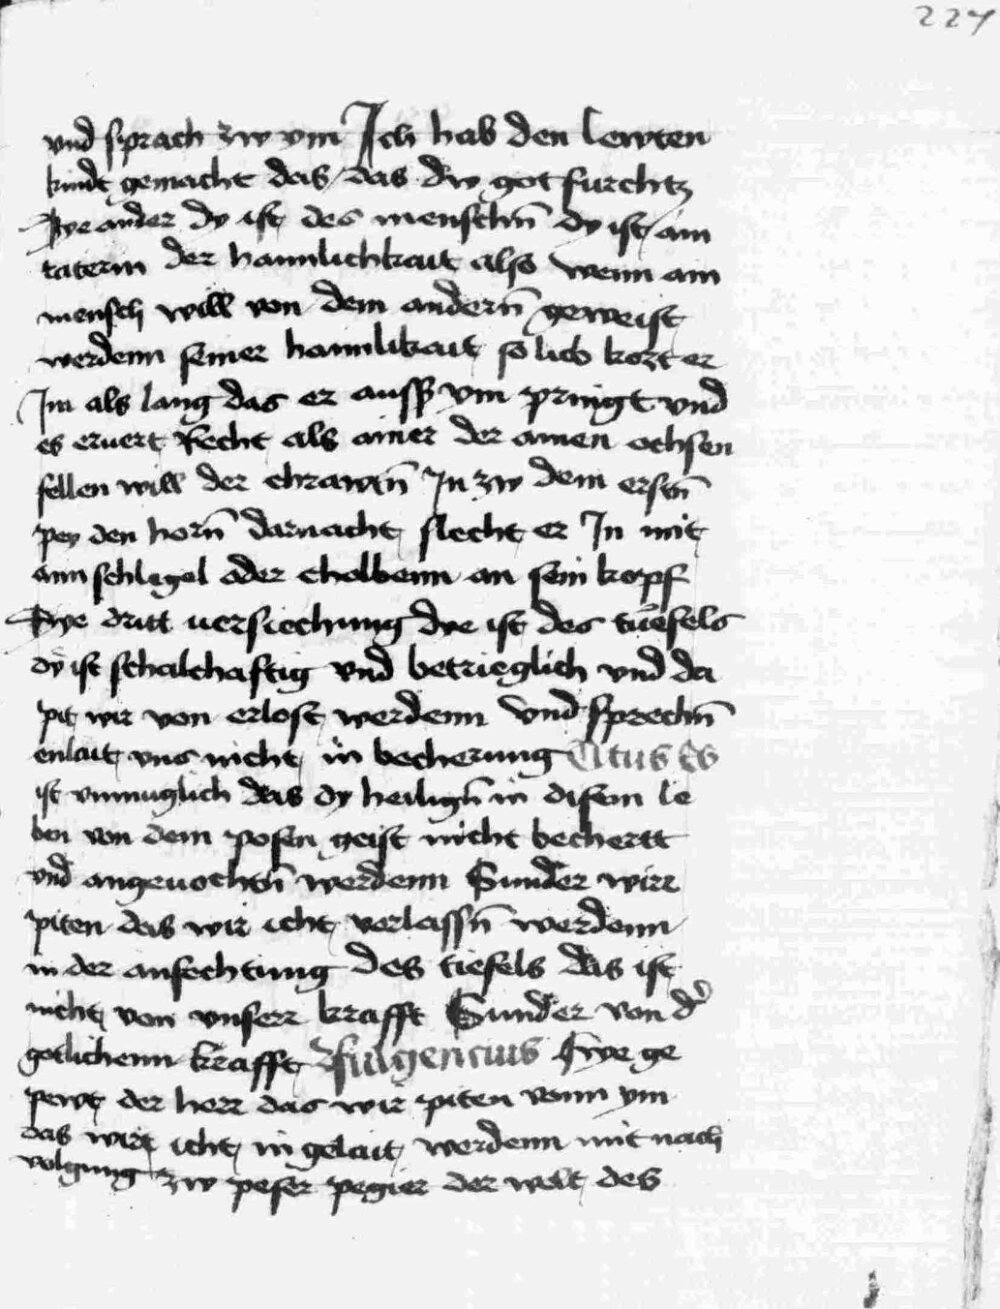 227
vnd sprach zw ym Ich hab den lewten
kindt gemacht das das dw got furchtz
Dye ander dy ist des menschn̄ dy ist ain
taterin der haimlichkait also wenn ain
mensch will von dem andern̄ geweist
werdenn seiner haimlikait so lieb kozt er
Im als lang das er auss ym pringt vnd
es ervert Recht als ainer der ainen ochsen
fellen will der chrawtn̄ In zw dem erstn̄
pey den horn̄ darnacht slecht er In mit
ainn schlegel oder cholbenn an sein kopf
Dye dritt versiechung dye ist des tüefels
dy ist schalchaftig vnd betrieglich vnd da
pit wir von erlost werdenn vnd sprechn̄
enlait vns nicht in becherung Es
ist vnmuglich das dy heilign̄ in disem le
ben von dem posen geist nicht bechertt
vnd angevochtn̄ werdenn Sunder wirr
piten das wir icht verlassn̄ werdenn
in der anfechtung des tiefels das ist
nicht von vnserr krafft Sunder von d'
gotlichenn krafft fulgencius Hye ge
pewt der herr das wir piten vonn ym
das wirt icht in gelait werdenn mit nach
volgung zw peser pegier der welt des